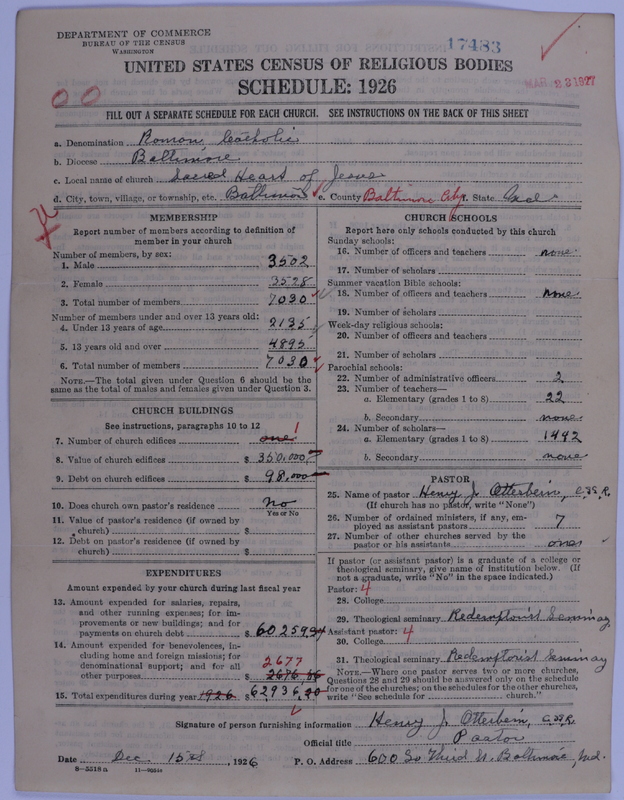 DEPARTMENT OF COMMERCE
BUREAU OF THE CENSUS
WASHINGTON
17483
UNITED STATES CENSUS OF RELIGIOUS BODIES
SCHEDULE: 1926
MAR 23 1927
00
FILL OUT A SEPARATE SCHEDULE FOR EACH CHURCH. SEE INSTRUCTIONS ON THE BACK OF THIS SHEET
a. Denomination Roman Catholic
b. Diocese Baltimore
c. Local name of church Sacred Heart of Jesus
d. City, town, village, or township, etc. Baltimore e. County Baltimore City f. State Md.
MEMBERSHIP
Report number of members according to definition of
member in your church
Number of members, by sex:
1. Male 3502
2. Female 3528
3. Total number of members 7030
Number of members under and over 13 years old:
4. Under 13 years of age 2135
5. 13 years old and over 4895
6. Total number of members 7030
NOTE.—The total given under Question 6 should be
same as the total of males and females given under Question 3.
CHURCH BUILDINGS
See instructions, paragraphs 10 to 12
7. Number of church edifices one 1
8. Value of church edifices $ 350,000
9. Debt on church edifices $ 98,000
10. Does church own pastor's residence No
Yes or No
11. Value of pastor's residence (if owned by
church) $
12. Debt on pastor's residence (if owned by
church) $
EXPENDITURES
Amount expended by your church during last fiscal year
13. Amount expended for salaries, repairs,
and other running expenses; for im-
provements or new buildings; and for
payments on church debt $ 60259
14. Amount expended for benevolences, in-
cluding home and foreign missions; for
denominational support; and for all
other purposes $ 2677
15. Total expenditures during year 1926 $ 62936
CHURCH SCHOOLS
Report here only schools conducted by this church
Sunday schools:
16. Number of officers and teachers none
17. Number of scholars
Summer vacation Bible schools:
18. Number of officers and teachers none
19. Number of scholars
Week-day religious schools:
20. Number of officers and teachers
21. Number of scholars
Parochial schools:
22. Number of administrative officers 2
23. Number of teachers—
a. Elementary (grades 1 to 8) 22
b. Secondary none
24. Number of scholars—
a. Elementary (grades 1 to 8) 1442
b. Secondary none
PASTOR
25. Name of pastor Henry J. Otterbein, C.SS.R.
(If church has no pastor, write "None")
26. Number of ordained ministers, if any, em-
ployed as assistant pastors 7
27. Number of other churches served by the
pastor or his assistants
If pastor (or assistant pastor) is a graduate of a college or
theological seminary, give name of institution below. (If
not a graduate, write "No" in the space indicated.)
Pastor: 4
28. College
29. Theological seminary Redemptorist Seminary
Assistant pastor: 4
30. College
31. Theological seminary Redemptorist Seminary
NOTE.—Where one pastor serves two or more churches,
Questions 28 and 29 should be answered only on the schedule
for one of the churches; on the schedules for the other churches,
write "See schedule for church."
Signature of person furnishing information Henry J. Otterbein, C.SS.R.
Official title Pastor
Date Dec. 15th, 1926 P. O. Address 600 So Third St. Baltimore, Md.
8—5518 a 11—9034